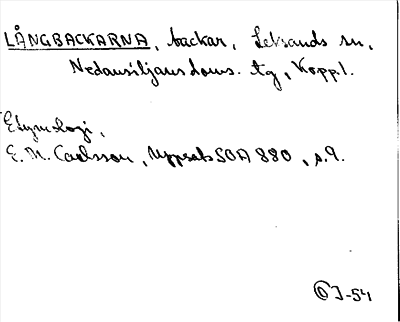 LÅNGBACKARNA, backar, Leksands sn,
Nedansiljans doms. tg, Kopp.l.
Etymologi,
E. M. Carlsson, Uppsats SOA 880, s. 9.
ÖJ-54